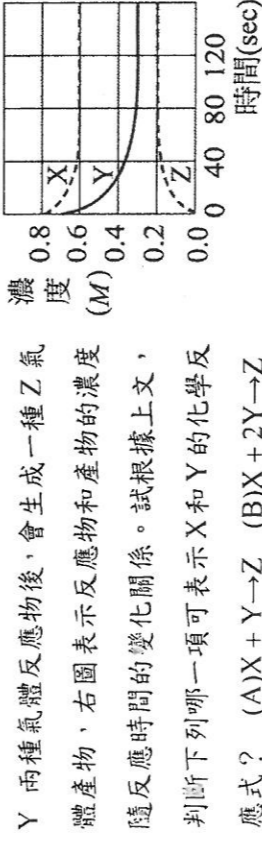 Y 兩種氣體反應物後，會生成一種 Z 氣
體產物，右圖表示反應物和產物的濃度
隨反應時間的變化關係。試根據上文，
判斷下列哪一項可表示 X 和 Y 的化學反
應式？ (A)X + Y→Z (B)X + 2Y→Z
濃度(M)
0.8
0.6
0.4
0.2
0.0
X
Y
Z
0 40 80 120
時間(sec)